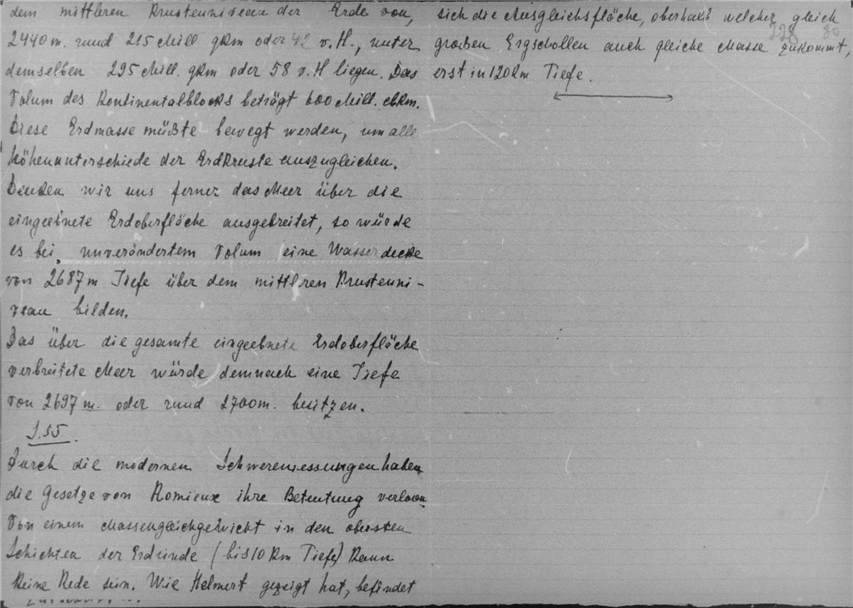 dem mittleren Krustenniveau der Erde von,
2440 m. rund 215 Mill qkm oder 42 v. H., unter
demselben 295 Mill. qkm oder 58 v. H liegen. Das
Volum des Kontinentalblocks beträgt 600 Mill. cbkm.
Diese Erdmasse müßte bewegt werden, um alle
Höhenunterschiede der Erdkruste auszugleichen.
Denken wir uns ferner das Meer über die
eingeebnete Erdoberfläche ausgebreitet, so würde
es bei unverändertem Volum eine Wasserdecke
von 2687 m Tiefe über dem mittleren Krustenni-
veau bilden.
Das über die gesamte eingeebnete Erdoberfläche
verbreitete Meer würde demnach eine Tiefe
von 2697 m. oder rund 2700 m. besitzen.
S. 55
Durch die modernen Schweremessungen haben
die Gesetze von Romieux ihre Beteutung verloren
Von einem Massengleichgewicht in den obersten
Schichten der Erdrinde (bis 10 km Tiefe) kann
keine Rede sein. Wie Helmert gezeigt hat, befindet
sich die Ausgleichsfläche, oberhalb welcher gleich
großen Ergschollen auch gleiche Masse zukommt,
erst in 120 km Tiefe.
228 80